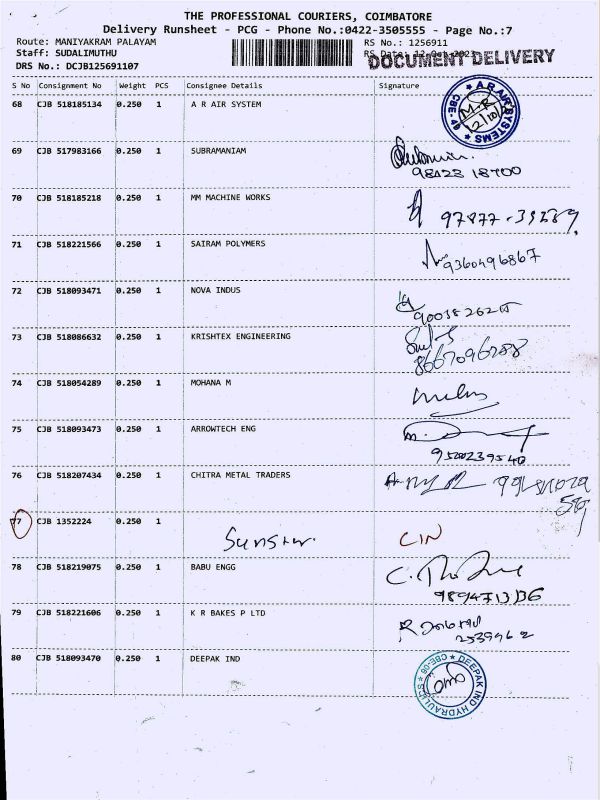 THE PROFESSIONAL COURIERS, COIMBATORE
Delivery Runsheet - PCG - Phone No.:0422-3505555 - Page No.:7
Route: MANIYAKRAM PALAYAM RS No.: 1256911
Staff: SUDALIMUTHU RS Date: 12-Oct-2023
DOCUMENT DELIVERY
DRS No.: DCJB125691107
S No Consignment No Weight PCS Consignee Details Signature
68 CJB 518185134 0.250 1 A R AIR SYSTEM
A.R AIR SYSTEMS CBE
69 CJB 517983166 0.250 1 SUBRAMANIAM
98423 18700
70 CJB 518185218 0.250 1 MM MACHINE WORKS
71 CJB 518221566 0.250 1 SAIRAM POLYMERS
9360496867
72 CJB 518093471 0.250 1 NOVA INDUS
73 CJB 518086632 0.250 1 KRISHTEX ENGINEERING
8667096288
74 CJB 518054289 0.250 1 MOHANA M
75 CJB 518093473 0.250 1 ARROWTECH ENG
9500239540
76 CJB 518207434 0.250 1 CHITRA METAL TRADERS
77 CJB 1352224 0.250 1
Sunstar. CIN
78 CJB 518219075 0.250 1 BABU ENGG
79 CJB 518221606 0.250 1 K R BAKES P LTD
2539962
80 CJB 518093470 0.250 1 DEEPAK IND
DEEPAK IND HYDRAULICS CBE-06